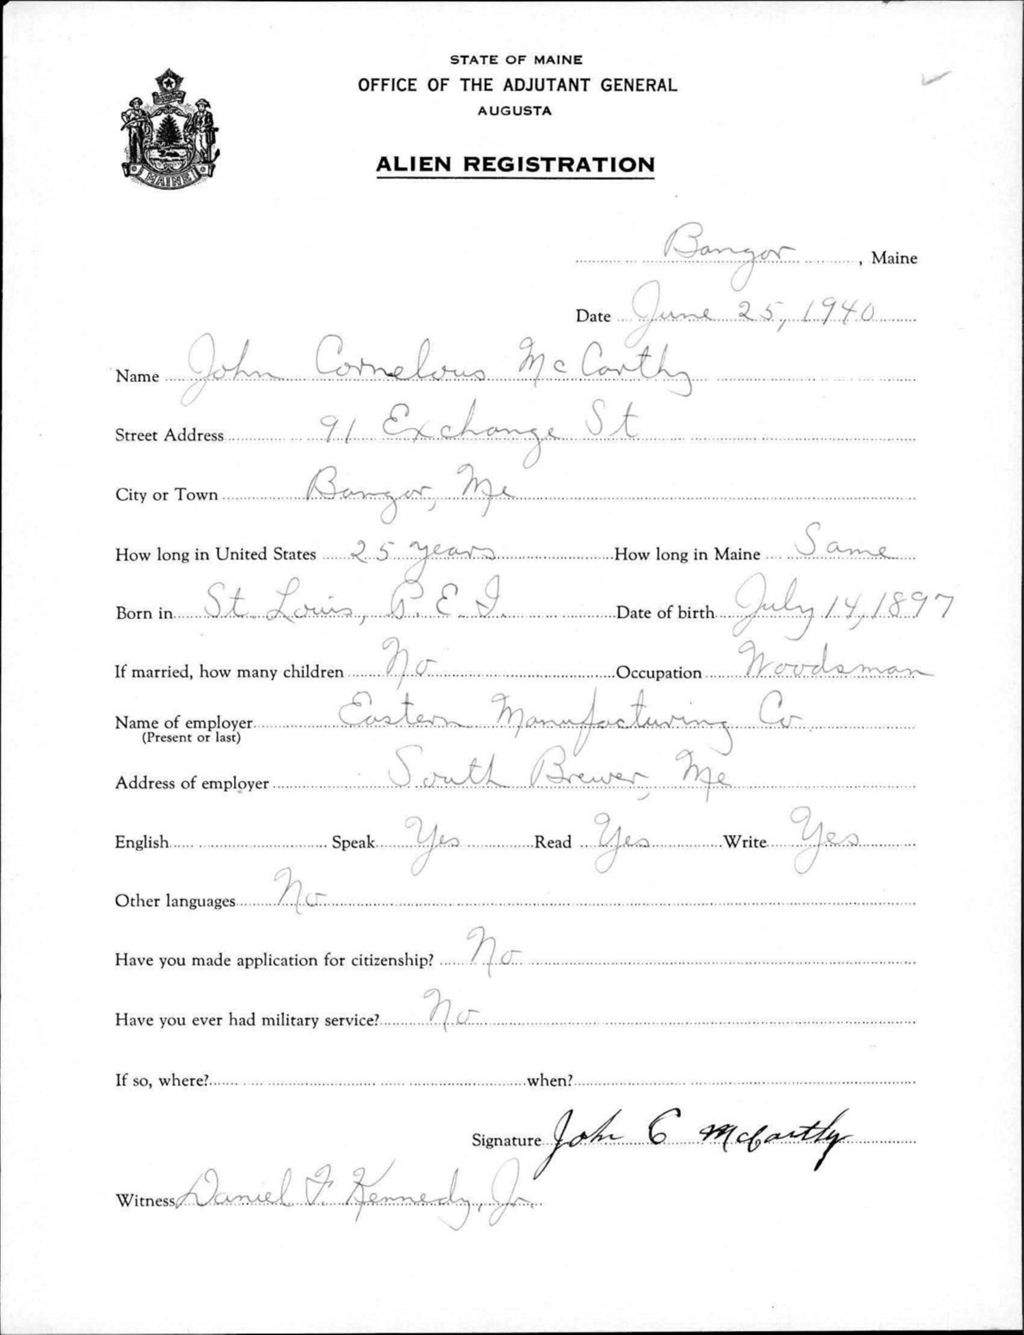 STATE OF MAINE
OFFICE OF THE ADJUTANT GENERAL
AUGUSTA
ALIEN REGISTRATION
MAINE
Bangor, Maine
Date June 25, 1940
Name John Cornelous McCarthy
Street Address 91 Exchange St
City or Town Bangor, Me
How long in United States 25 years How long in Maine Same
Born in St. Louis, P.E.I. Date of birth July 14, 1897
If married, how many children No Occupation Woodsman
Name of employer Eastern Manufacturing Co
(Present or last)
Address of employer South Brewer, Me
English Speak Yes Read Yes Write Yes
Other languages No
Have you made application for citizenship? No
Have you ever had military service? No
If so, where? when?
Signature John C McCarthy
Witness Daniel F. Kennedy, Jr.